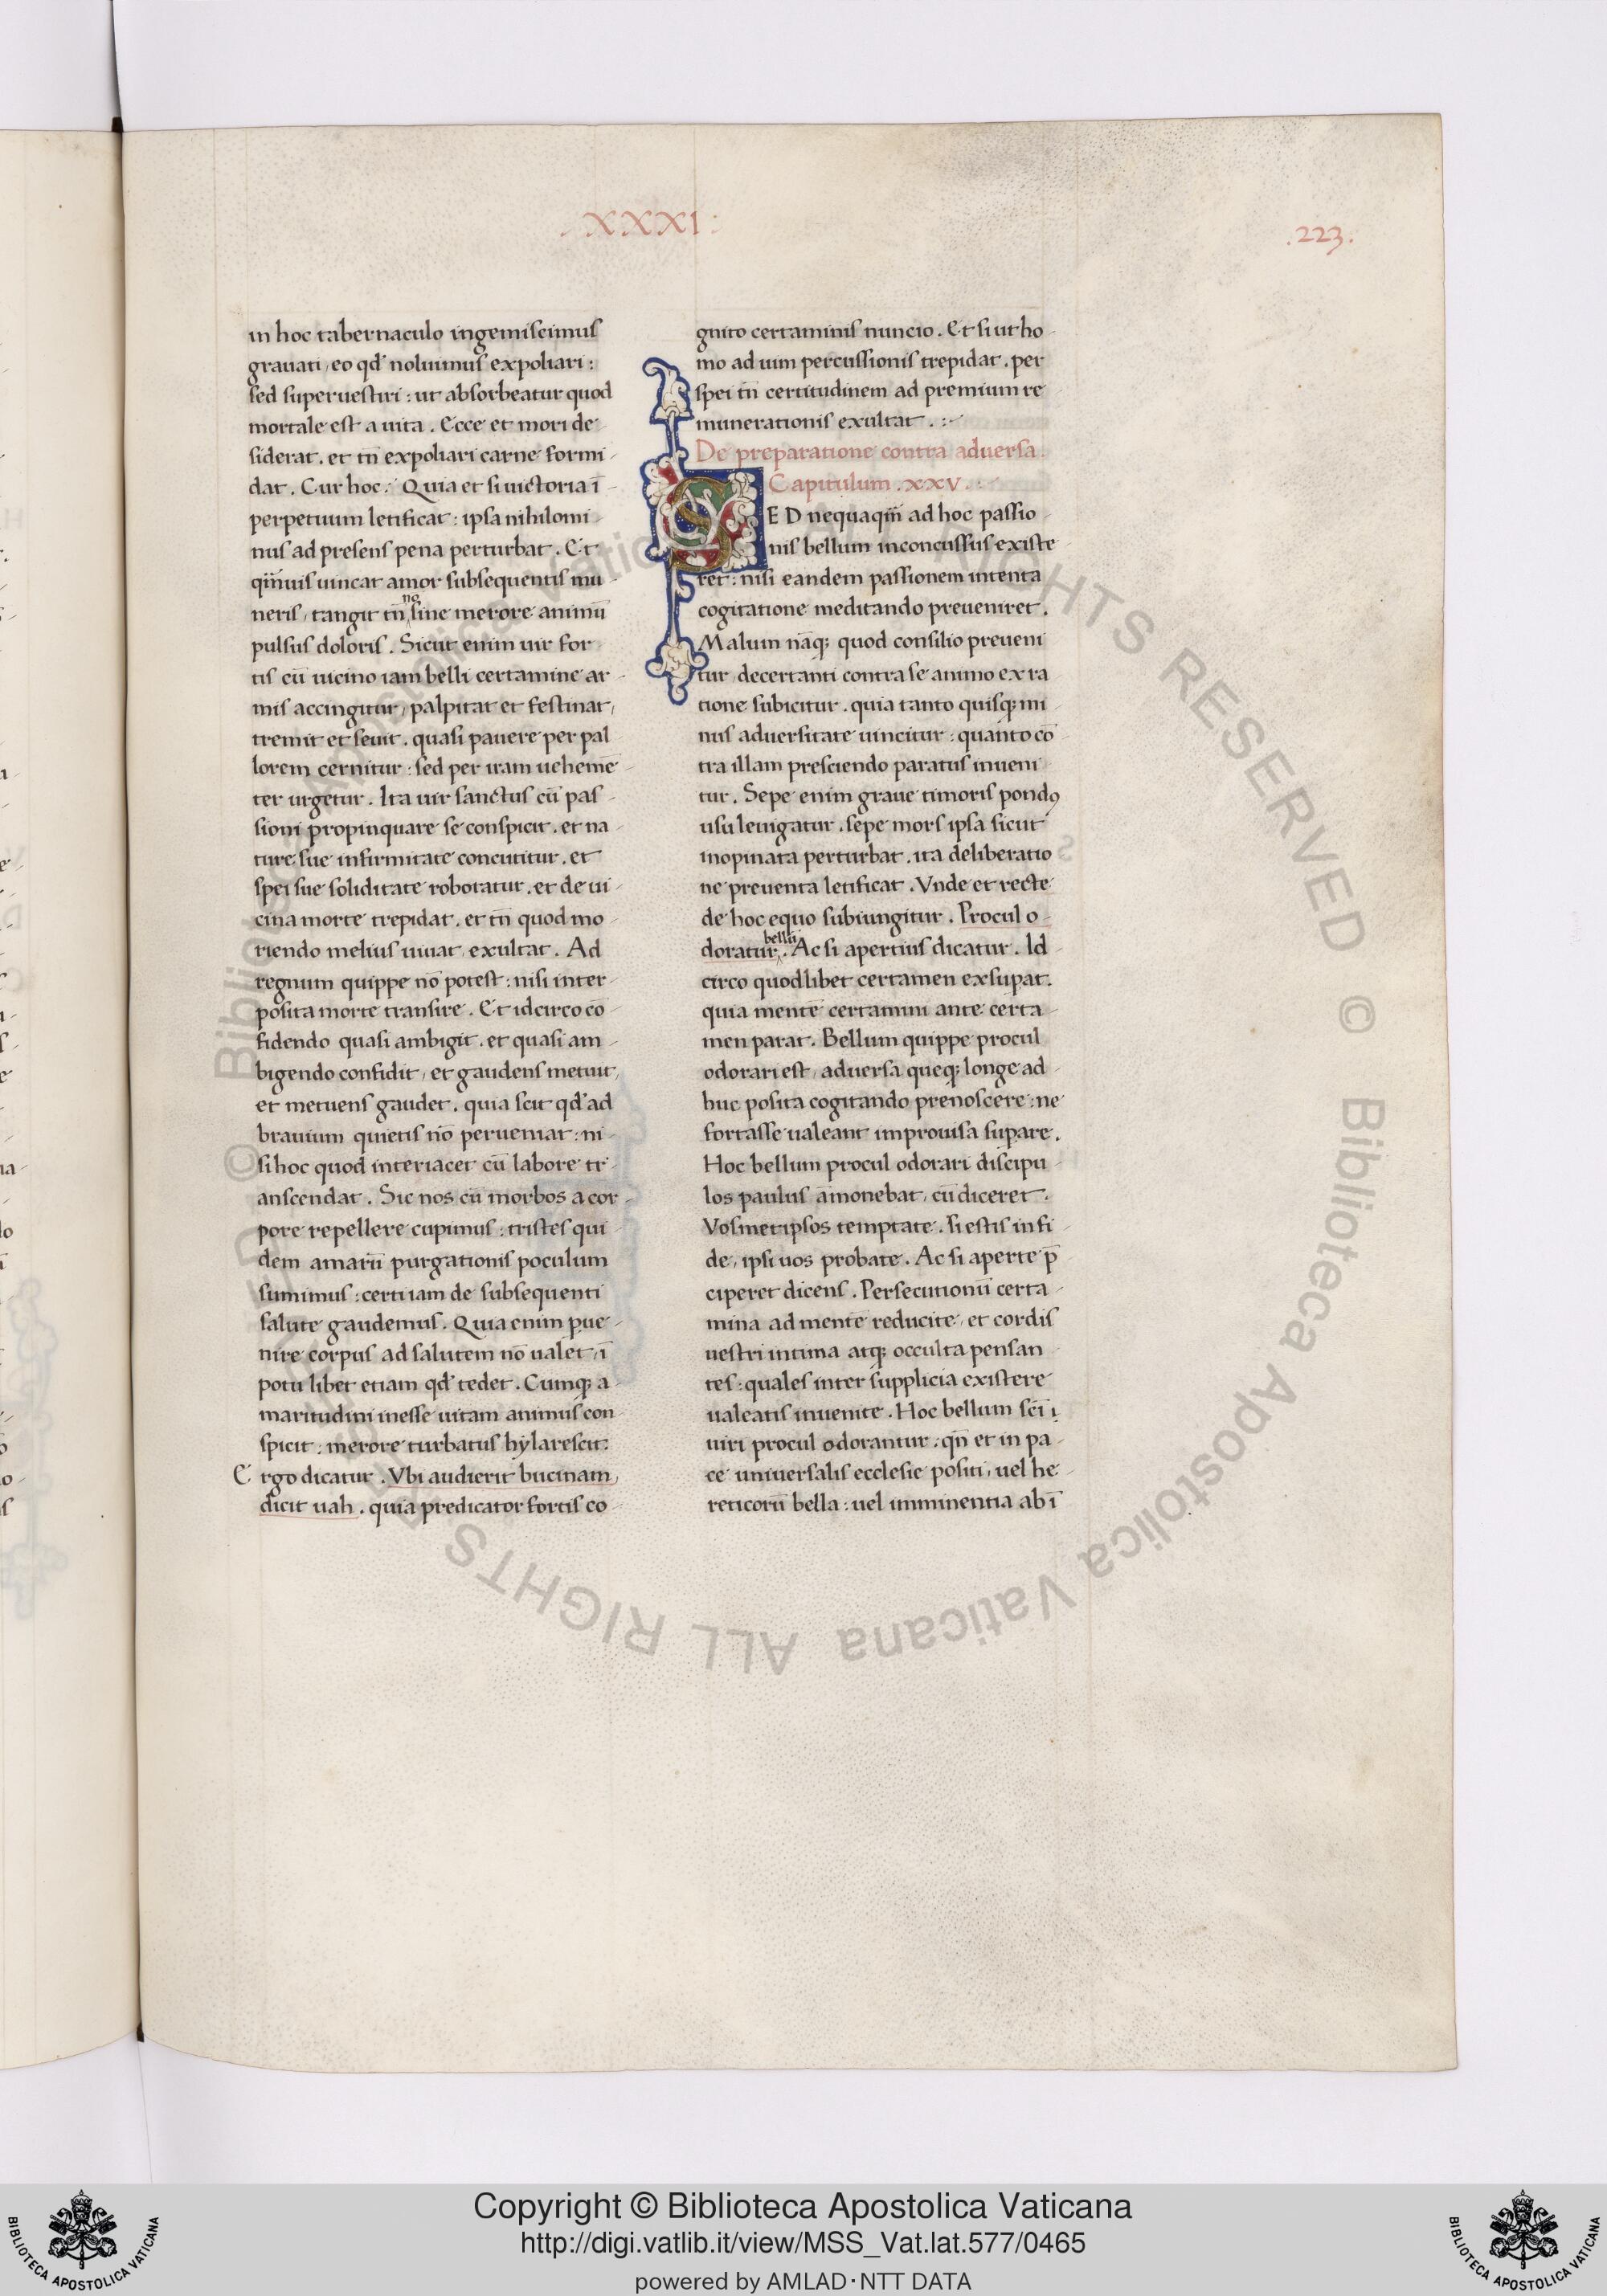 . XXXI :
.223.
in hoc tabernaculo ingemiscimus
grauati, eo qđ nolumus expoliari :
sed superuestiri : ut absorbeatur quod
mortale est a uita . Ecce et mori de-
siderat . et tn̄ expoliari carne formi-
dat . Cur hoc . Quia et si uictoria ī
perpetuum letificat : ipsa nihilomi-
nus ad presens pena perturbat . Et
qm̄uis uincat amor subsequentis mu-
neris, tangit tn̄ ne sine merore animū
pulsus doloris . Sicut enim uir for
tis cū uicino iam belli certamine ar-
mis accingitur, palpitat et festinat,
tremit et seuit . quasi pauere per pal
lorem cernitur : sed per iram uehemē-
ter urgetur . Ita uir sanctus cū pas-
sioni propinquare se conspicit . et na-
ture sue infirmitate concutitur . et
spei sue soliditate roboratur . et de ui-
cina morte trepidat . et tn̄ quod mo-
riendo melius uiuat, exultat . Ad
regnum quippe nō potest : nisi inter-
posita morte transire . Et idcirco cō-
fidendo quasi ambigit . et quasi am-
bigendo confidit, et gaudens metuit,
et metuens gaudet . quia scit qđ ad
brauium quietis nō perueniat : ni-
si hoc quod interiacet cū labore tr-
anscendat . Sic nos cū morbos a cor-
pore repellere cupimus : tristes qui
dem amarū purgationis poculum
sumimus : certi iam de subsequenti
salute gaudemus . Quia enim ꝑue-
nire corpus ad salutem nō ualet, ī
potu libet etiam qđ tedet . Cumqꝫ a-
maritudini inesse uitam animus con
spicit : merore turbatus hylarescit :
Ergo dicatur . Vbi audierit bucinam,
dicit uah . quia predicator fortis co-
gnito certaminis nuncio . Et si ut ho-
mo ad uim percussionis trepidat . per
spei tn̄ certitudinem ad premium re
munerationis exultat . :-
De preparatione contra aduersa .
Capitulum . xxv . :
SED nequaqm̄ ad hoc passio-
nis bellum inconcussus existe
ret : nisi eandem passionem intenta
cogitatione meditando preueniret .
Malum nāqꝫ quod consilio preueni
tur, decertanti contra se animo ex ra
tione subicitur . quia tanto quisqꝫ mi
nus aduersitate uincitur : quanto cō-
tra illam presciendo paratus inueni
tur . Sepe enim graue timoris pondꝰ
usu leuigatur . sepe mors ipsa sicut
inopinata perturbat . ita deliberatio
ne preuenta letificat . Vnde et recte
de hoc equo subiungitur . Procul o-
doratur bellū . Ac si apertius dicatur . Id
circo quodlibet certamen exsuꝑat .
quia mentē certamini ante certa-
men parat . Bellum quippe procul
odorari est, aduersa queqꝫ longe ad-
huc posita cogitando prenoscere : ne
fortasse ualeant improuisa suꝑare .
Hoc bellum procul odorari discipu-
los paulus āmonebat, cū diceret .
Vosmetipsos temptate . si estis in fi-
de, ipsi uos probate . Ac si aperte p̄
ciperet dicens . Persecutionū certa-
mina ad mentē reducite, et cordis
uestri intima atqꝫ occulta pensan-
tes : quales inter supplicia existere
ualeatis inuenite . Hoc bellum scī ī
uiri procul odorantur . qn̄ et in pa-
ce uniuersalis ecclesie positi, uel he-
reticorū bella : uel imminentia ab ī
© Biblioteca Apostolica Vaticana ALL RIGHTS RESERVED
Copyright © Biblioteca Apostolica Vaticana
http://digi.vatlib.it/view/MSS_Vat.lat.577/0465
powered by AMLAD·NTT DATA
BIBLIOTECA APOSTOLICA VATICANA
BIBLIOTECA APOSTOLICA VATICANA